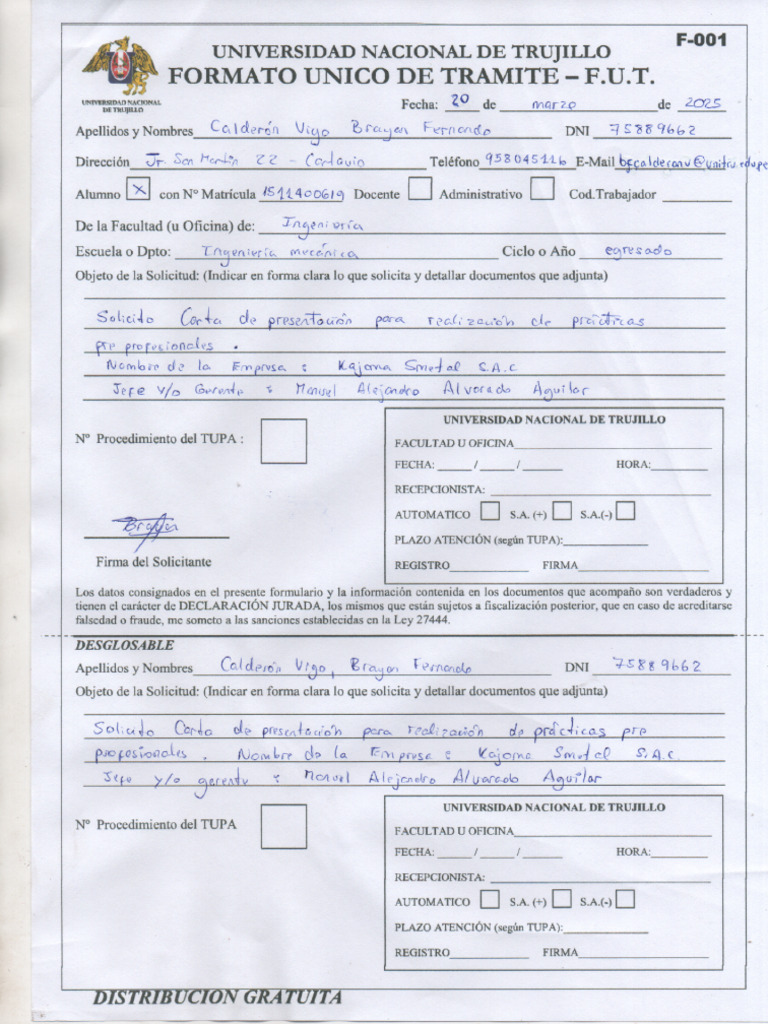 F-001
UNIVERSIDAD NACIONAL DE TRUJILLO
FORMATO UNICO DE TRAMITE – F.U.T.
UNIVERSIDAD NACIONAL
DE TRUJILLO
Fecha: 20 de marzo de 2025
Apellidos y Nombres Calderón Vigo Brayan Fernando DNI 75889662
Dirección Jr San Martín 22 - Cartavio Teléfono 958045116 E-Mail bfcalderonv@unitru.edu.pe
Alumno X con N° Matrícula 1511400619 Docente Administrativo Cod.Trabajador
De la Facultad (u Oficina) de: Ingeniería
Escuela o Dpto: Ingeniería mecánica Ciclo o Año egresado
Objeto de la Solicitud: (Indicar en forma clara lo que solicita y detallar documentos que adjunta)
Solicito Carta de presentación para realización de prácticas
pre profesionales .
Nombre de la Empresa : Kajoma Smetal S.A.C
Jefe y/o Gerente : Manuel Alejandro Alvarado Aguilar
N° Procedimiento del TUPA :
Brayan
Firma del Solicitante
UNIVERSIDAD NACIONAL DE TRUJILLO
FACULTAD U OFICINA
FECHA: / / HORA:
RECEPCIONISTA:
AUTOMATICO S.A. (+) S.A.(-)
PLAZO ATENCIÓN (según TUPA):
REGISTRO FIRMA
Los datos consignados en el presente formulario y la información contenida en los documentos que acompaño son verdaderos y
tienen el carácter de DECLARACIÓN JURADA, los mismos que están sujetos a fiscalización posterior, que en caso de acreditarse
falsedad o fraude, me someto a las sanciones establecidas en la Ley 27444.
DESGLOSABLE
Apellidos y Nombres Calderón Vigo, Brayan Fernando DNI 75889662
Objeto de la Solicitud: (Indicar en forma clara lo que solicita y detallar documentos que adjunta)
Solicito Carta de presentación para realización de prácticas pre
profesionales . Nombre de la Empresa : Kajoma Smetal S.A.C.
Jefe y/o gerente : Manuel Alejandro Alvarado Aguilar
N° Procedimiento del TUPA
UNIVERSIDAD NACIONAL DE TRUJILLO
FACULTAD U OFICINA
FECHA: / / HORA:
RECEPCIONISTA:
AUTOMATICO S.A. (+) S.A.(-)
PLAZO ATENCIÓN (según TUPA):
REGISTRO FIRMA
DISTRIBUCION GRATUITA